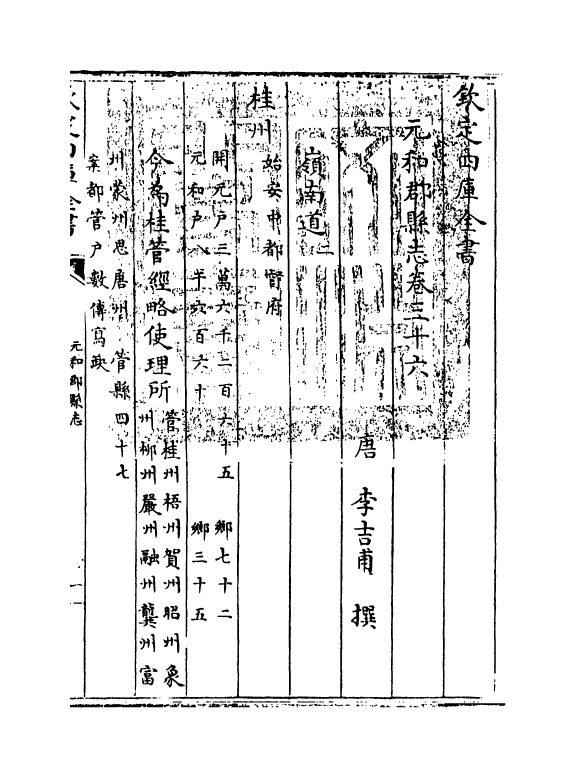 欽定四庫全書
元和郡縣志卷三十六
唐 李吉甫 撰
嶺南道二
桂州始安中都督府
開元戶三萬六千二百六十五 鄉七十二
元和戶八千六百六十 鄉三十五
今為桂管經略使理所
管桂州梧州賀州昭州象
州柳州嚴州融州龔州富
州蒙州思唐州 管縣四十七
案都管戶數傳寫缺
欽定四庫全書
元和郡縣志